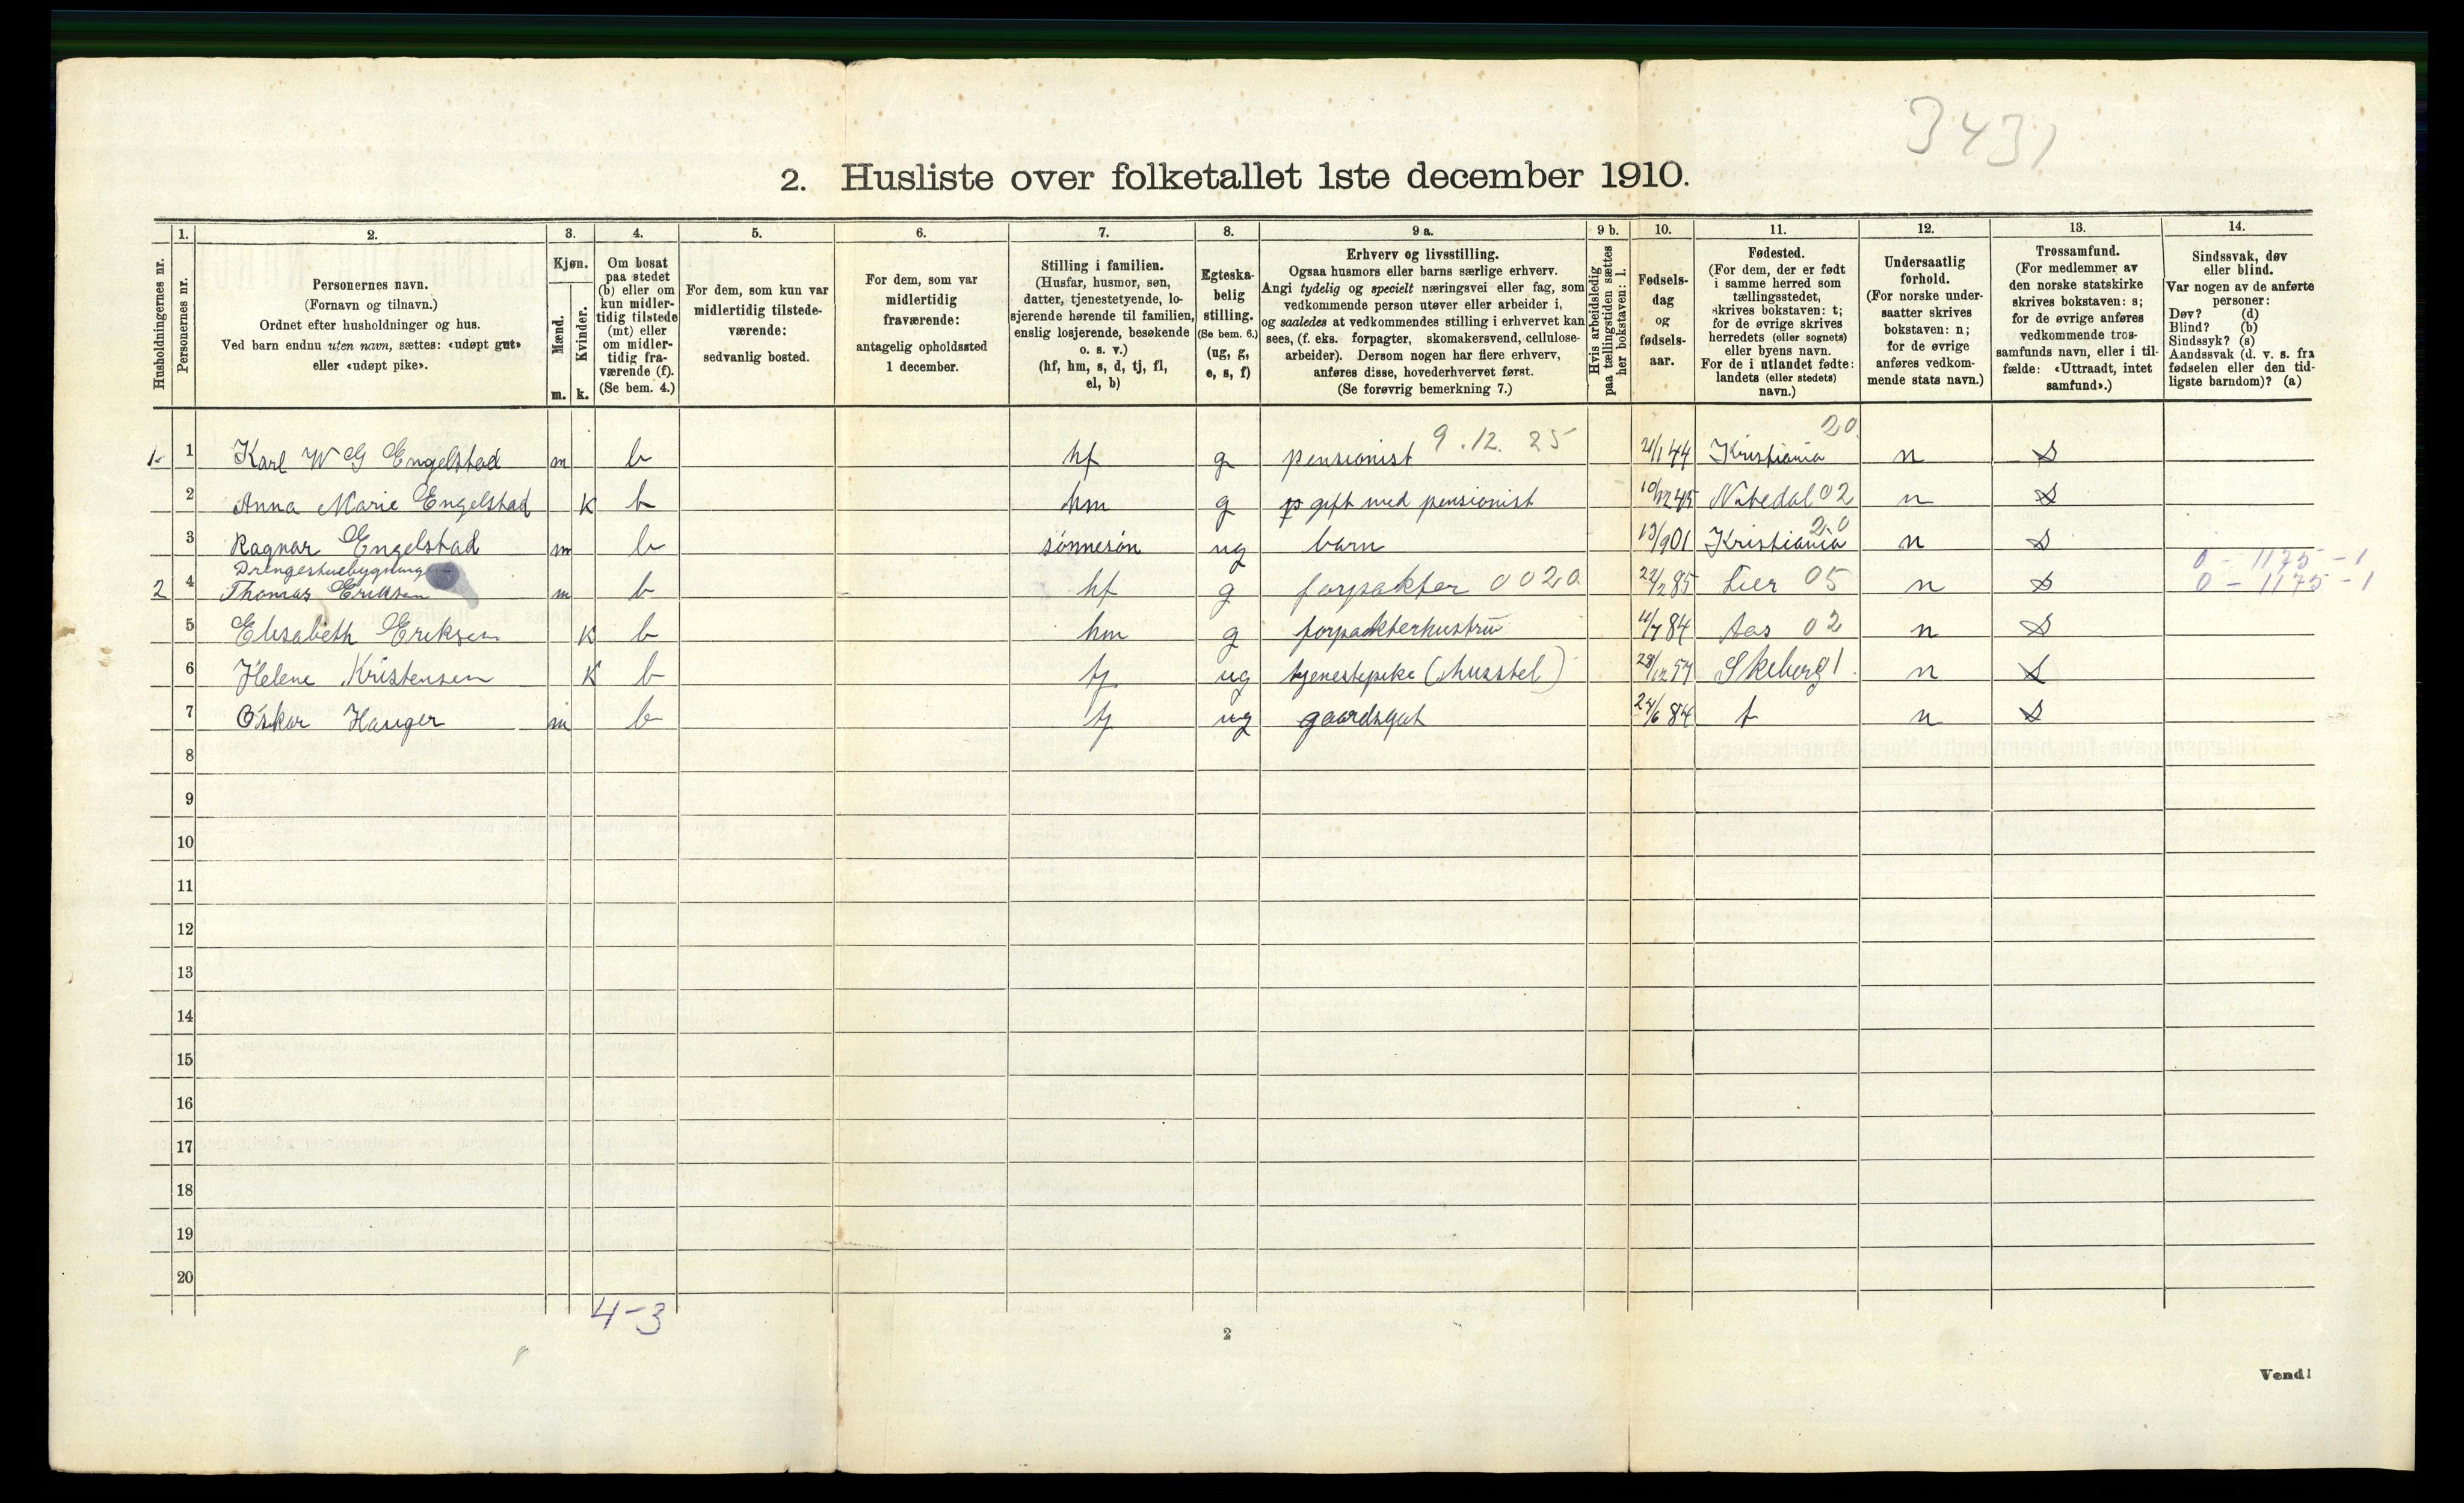 3431
2. Husliste over folketallet 1ste december 1910.
Husholdningernes nr.
1.
Personernes nr.
2.
Personernes navn.
(Fornavn og tilnavn.)
Ordnet efter husholdninger og hus.
Ved barn endnu uten navn, sættes: «udøpt gut»
eller «udøpt pike».
3.
Kjøn.
Mænd.
Kvinder.
m. k.
4.
Om bosat
paa stedet
(b) eller om
kun midler-
tidig tilstede
(mt) eller
om midler-
tidig fra-
værende (f).
(Se bem. 4.)
5.
For dem, som kun var
midlertidig tilstede-
værende:
sedvanlig bosted.
6.
For dem, som var
midlertidig
fraværende:
antagelig opholdssted
1 december.
7.
Stilling i familien.
(Husfar, husmor, søn,
datter, tjenestetyende, lo-
sjerende hørende til familien,
enslig losjerende, besøkende
o. s. v.)
(hf, hm, s, d, tj, fl,
el, b)
8.
Egteska-
belig
stilling.
(Se bem. 6.)
(ug, g,
e, s, f)
9 a.
Erhverv og livsstilling.
Ogsaa husmors eller barns særlige erhverv.
Angi tydelig og specielt næringsvei eller fag, som
vedkommende person utøver eller arbeider i,
og saaledes at vedkommendes stilling i erhvervet kan
sees, (f. eks. forpagter, skomakersvend, cellulose-
arbeider). Dersom nogen har flere erhverv,
anføres disse, hovederhvervet først.
(Se forøvrig bemerkning 7.)
9 b.
Hvis arbeidsledig
paa tællingstiden sættes
her bokstaven: l.
10.
Fødsels-
dag
og
fødsels-
aar.
11.
Fødested.
(For dem, der er født
i samme herred som
tællingsstedet,
skrives bokstaven: t;
for de øvrige skrives
herredets (eller sognets)
eller byens navn.
For de i utlandet fødte:
landets (eller stedets)
navn.)
12.
Undersaatlig
forhold.
(For norske under-
saatter skrives
bokstaven: n;
for de øvrige
anføres vedkom-
mende stats navn.)
13.
Trossamfund.
(For medlemmer av
den norske statskirke
skrives bokstaven: s;
for de øvrige anføres
vedkommende tros-
samfunds navn, eller i til-
fælde: «Uttraadt, intet
samfund».)
14.
Sindssvak, døv
eller blind.
Var nogen av de anførte
personer:
Døv? (d)
Blind? (b)
Sindssyk? (s)
Aandssvak (d. v. s. fra
fødselen eller den tid-
ligste barndom)? (a)
9.12. 25 20
1. 1 Karl W G Engelstad m b hf g pensionist 21/1 44 Kristiania n s
2 Anna Marie Engelstad k b hm g gift med pensionist 45 02 n s
20
3 Ragnar Engelstad m b sønnesøn ug barn 13/9 01 Kristiania n s
Drengestuebygning 0 - 1175 - 1
2 4 Thomas Eriksen m b hf g forpakter 0020 85 Lier 05 n s 0 - 1175 - 1
5 Elisabeth Eriksen k b hm g forpakterhustru 84 Aas 02 n s
6 Helene Kristensen k b tj ug tjenestepike (husstel) Skeberg 1 n s
7 Oskar Hauger m b tj ug gaardsgut 24/6 84 t n s
8
9
10
11
12
13
14
15
16
17
18
19
20
4-3
2
Vend!